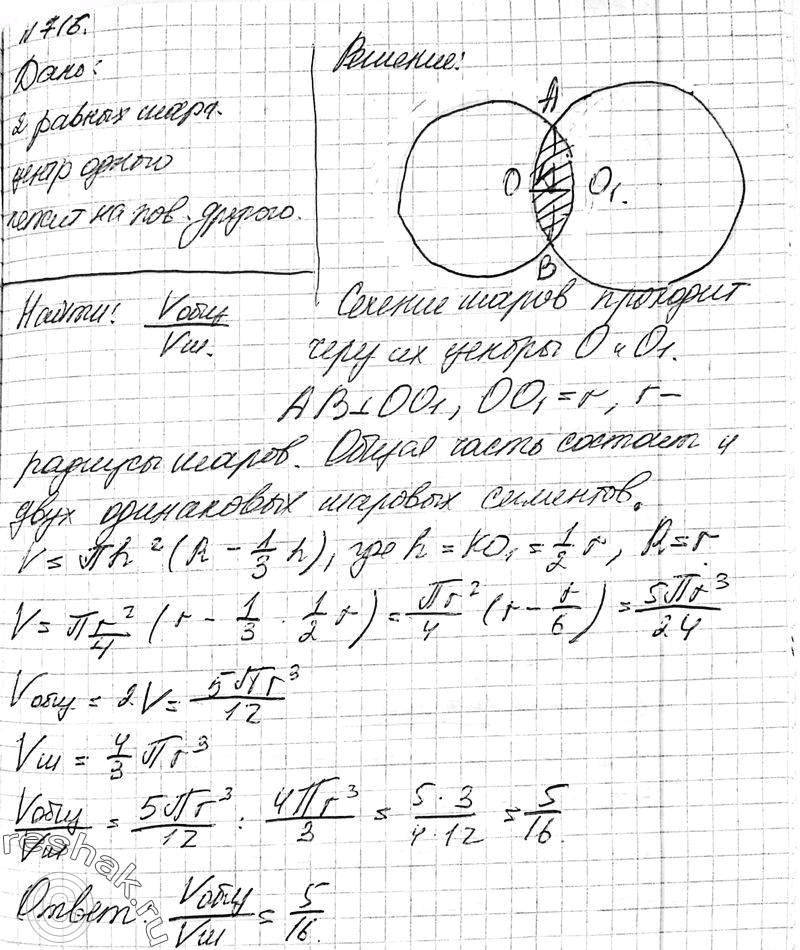 №716.
Дано:
2 равных шара.
центр одного
лежит на пов. другого.
Найти: Vобщ/Vш.
Решение:
A
O K O₁.
B
Сечение шаров проходит
через их центры O и O₁.
AB⊥OO₁, OO₁ = r, r –
радиусы шаров. Общая часть состоит и
двух одинаковых шаровых сегментов.
V = πh²(R − 1/3 h), где h = KO₁ = 1/2 r, R = r.
V = π r²/4 (r − 1/3 · 1/2 r) = πr²/4 (r − r/6) = 5πr³/24
Vобщ = 2V = 5πr³/12
Vш = 4/3 πr³
Vобщ/Vш = 5πr³/12 : 4πr³/3 = 5·3/4·12 = 5/16.
Ответ: Vобщ/Vш = 5/16.
reshak.ru